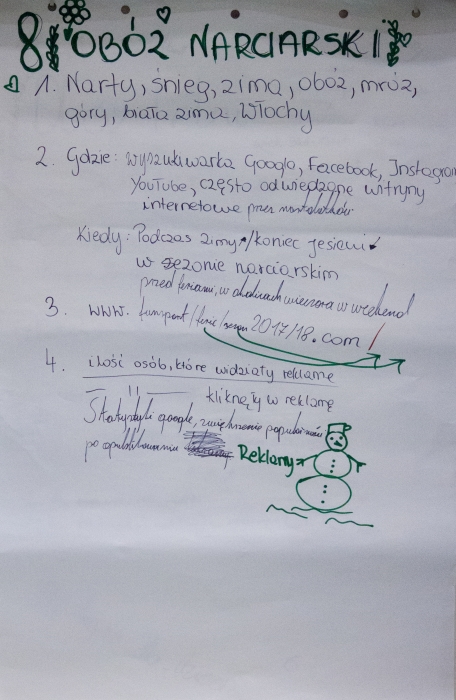 8. OBÓZ NARCIARSKI
1. Narty, śnieg, zima, obóz, mróz,
góry, biała zima, Włochy
2. Gdzie: wyszukiwarka Google, Facebook, Instagram
YouTube, często odwiedzane witryny
internetowe przez nastolatków
Kiedy: Podczas zimy/koniec jesieni
w sezonie narciarskim
przed feriami, w okolicach wieczora w weekend
3. www. funsport/ferie/sezon 2017/18.com
4. ilość osób, które widziały reklamę
—||— kliknęły w reklamę
Statystyki google, zwiększenie popularności
po opublikowaniu
Reklamy